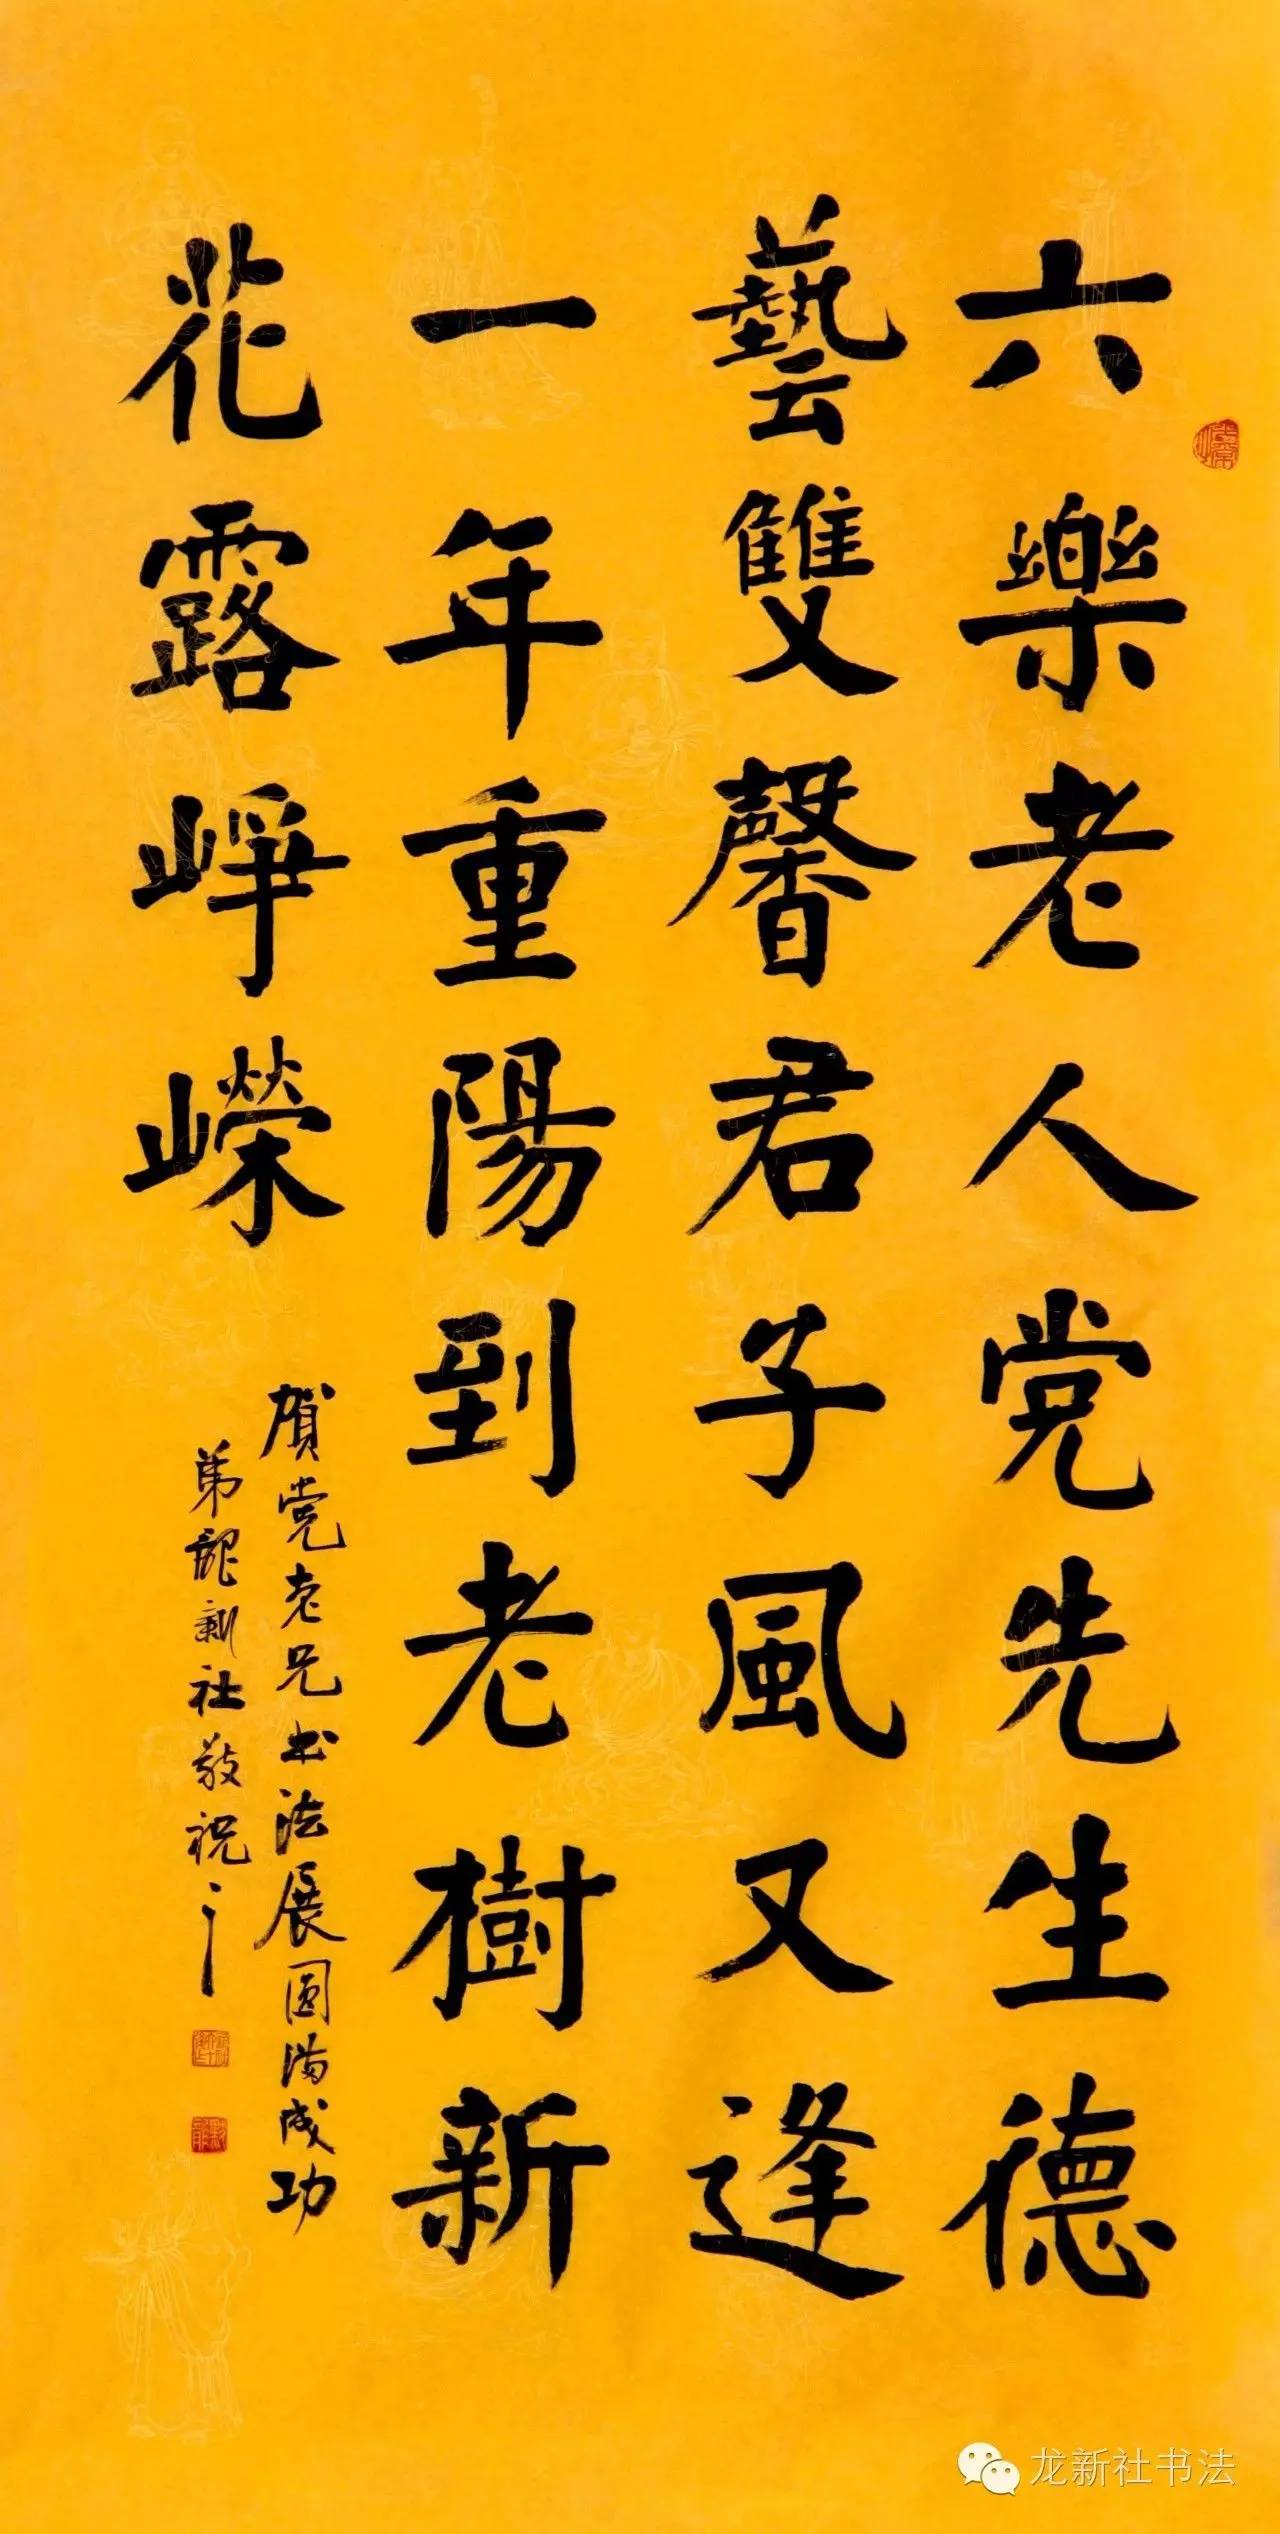 六樂老人党先生德
藝雙馨君子風又逢
一年重陽到老樹新
花露崢嶸
賀党老兄书法展圓滿成功
弟龍新社敬祝
龙新社书法